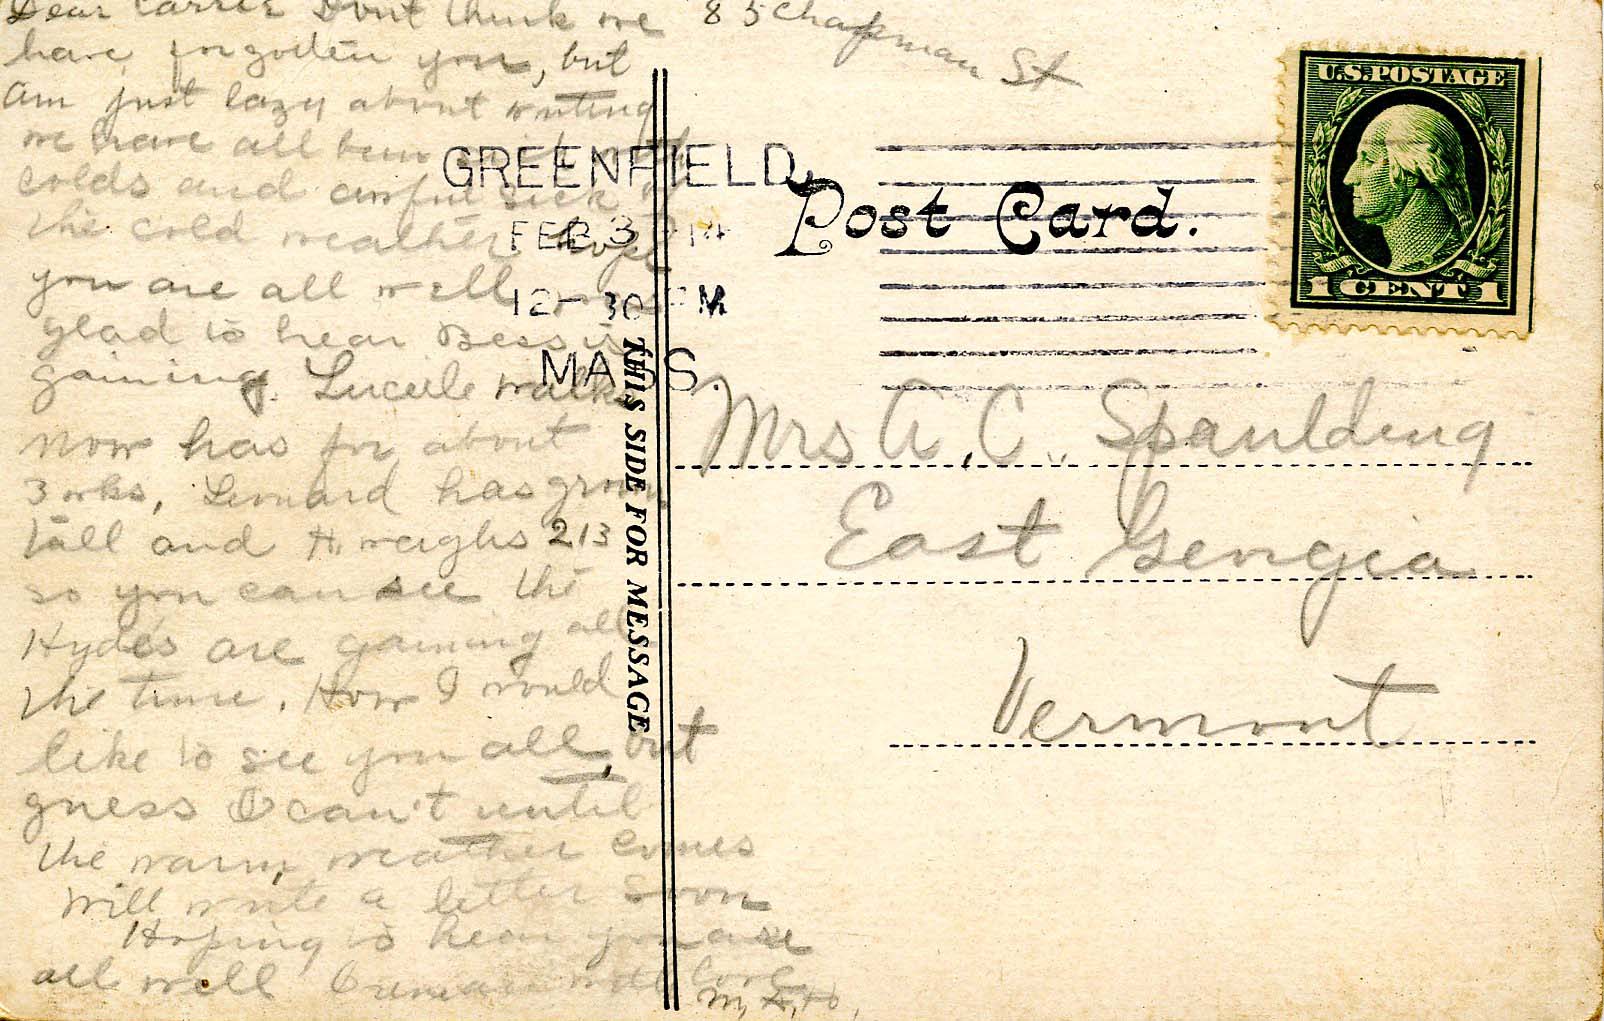 Dear Carrie Dont think we
have forgotten you, but
am just lazy about writing
we have all been sick with
colds and awful sick of
the cold weather hope
you are all well was
glad to hear Bess is
gaining. Lucille walks
now has for about
3 wks, Leonard has grown
tall and H. weighs 213
so you can see the
Hyde's are gaining all
the time. How I would
like to see you all, but
guess I can't until
the warm weather comes
will write a letter soon
Hoping to hear you are
all well I remain with love
M, L, H,
85 Chapman St
GREENFIELD,
FEB 3
12-30 PM
MASS.
Post Card.
U.S. POSTAGE
1 CENT 1
THIS SIDE FOR MESSAGE
Mrs A. C. Spaulding
East Georgia
Vermont